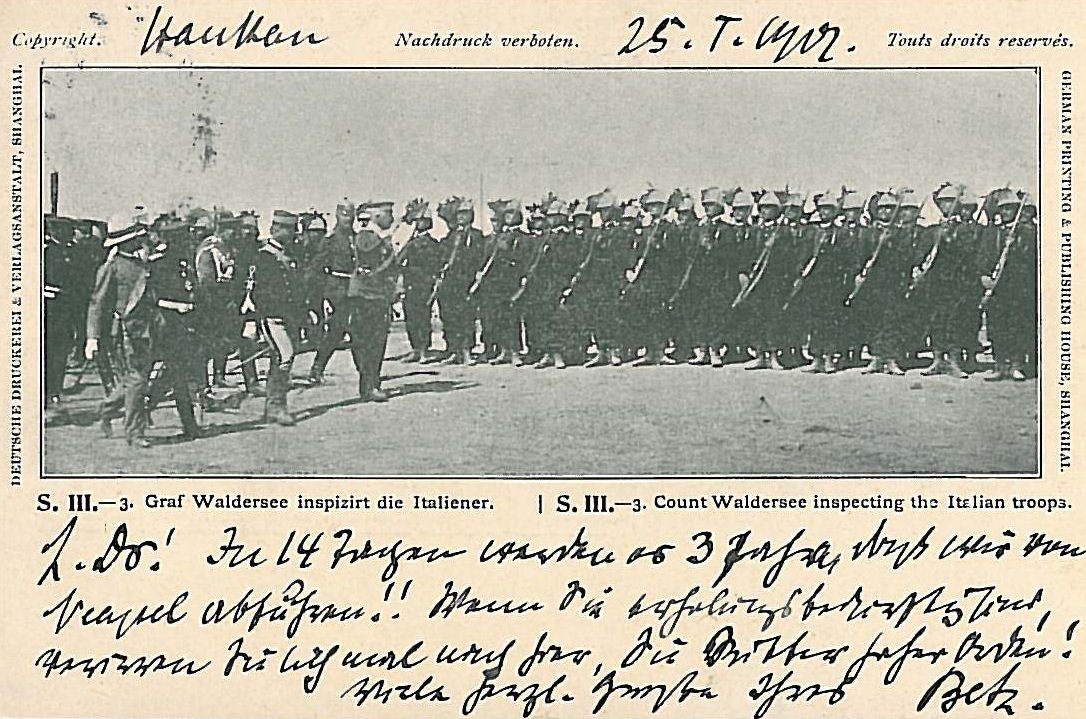 Copyright. Hankow Nachdruck verboten. 25. I. Touts droits reservés.
DEUTSCHE DRUCKEREI & VERLAGSANSTALT, SHANGHAI.
GERMAN PRINTING & PUBLISHING HOUSE, SHANGHAI.
S. III.—3. Graf Waldersee inspizirt die Italiener. | S. III.—3. Count Waldersee inspecting the Italian troops.
L. Dr.! In 14 Tagen werden es 3 Jahre, daß wir von
Neapel abfuhren!! Wenn Sie erholungsbedürftig sind,
verirren Sie sich mal nach hier, Sie Ritter hoher Orden!
Viele herzl. Grüße Ihres Betz.